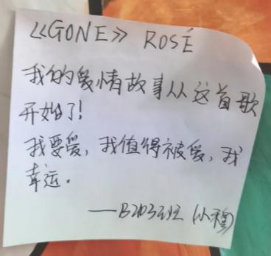 《GONE》 ROSÉ
我的爱情故事从这首歌
开始了!
我要爱,我值得被爱,我
幸运.
——B203班 (小穆)